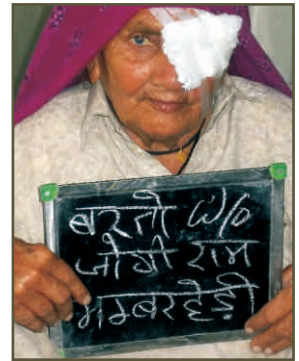 बरतो W/o
जोगी राम
मम्बरहेड़ी